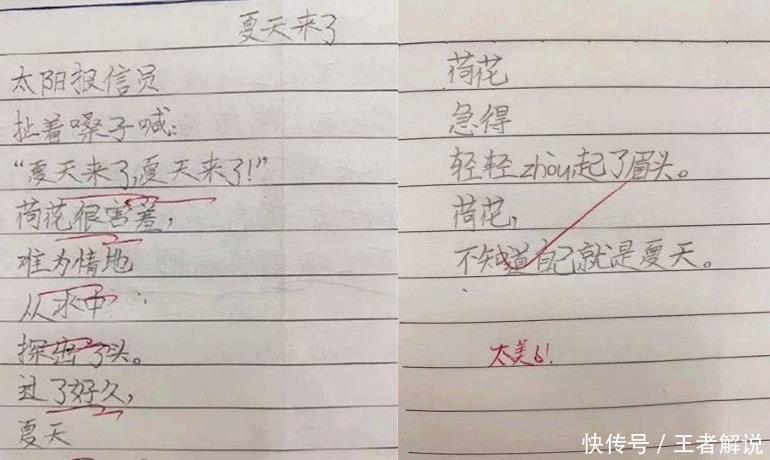 夏天来了
太阳报信员
扯着嗓子喊:
“夏天来了,夏天来了!”
荷花很害羞,
难为情地
从水中
探出了头。
过了好久,
夏天
荷花
急得
轻轻zhou起了眉头。
荷花,
不知道自己就是夏天。
太美了!
快传号/王者解说